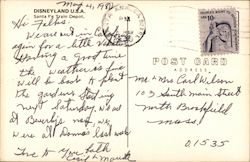 May 4, 1981
DISNEYLAND U.S.A.
Santa Fe Train Depot.
Hi Folks
We are out in Cal
again for a little visit
Having a good time
the weather is fine
will be back to plant
the garden Starting
next Saturday. was at
Beverly's now we
were at Donnas last week
Give to you both
POST CARD
Mr + Mrs Carl Wilson
103 South main Street
north Brookfield
mass.
01535
USA
10c